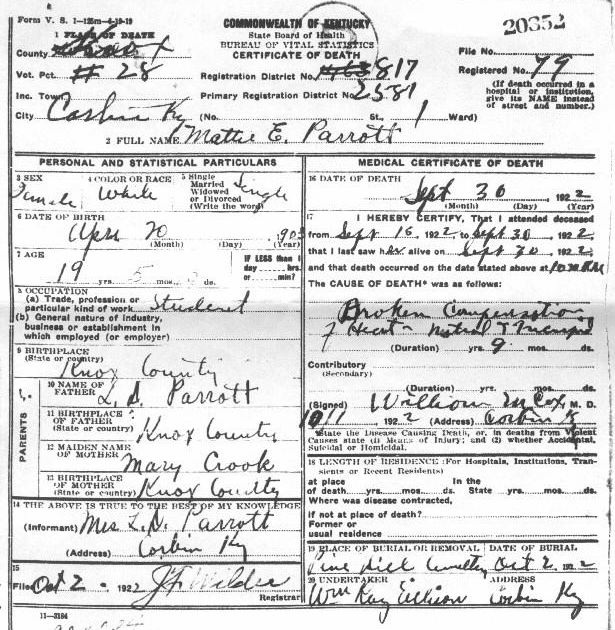 Form V. S. 1-125m-4-19-19
COMMONWEALTH OF KENTUCKY
20352
1 PLACE OF DEATH
State Board of Health
BUREAU OF VITAL STATISTICS
CERTIFICATE OF DEATH
County Knox
File No.
Vot. Pct. # 28
Registration District No. 817
Registered No. 79
(If death occurred in a hospital or institution, give its NAME instead of street and number.)
Inc. Town
Primary Registration District No. 2581
City Corbin Ky (No. St., 1 Ward)
2 FULL NAME Mattie E. Parrott
PERSONAL AND STATISTICAL PARTICULARS
3 SEX Female
4 COLOR OR RACE White
5 Single Married Widowed or Divorced (Write the word) Single
6 DATE OF BIRTH
Apr 20 1903
(Month) (Day) (Year)
7 AGE
19 yrs. 5 mos. ds.
IF LESS than 1 day hrs. or min?
8 OCCUPATION
(a) Trade, profession or particular kind of work Student
(b) General nature of industry, business or establishment in which employed (or employer)
9 BIRTHPLACE
(State or country) Knox County
PARENTS
10 NAME OF FATHER L. D. Parrott
11 BIRTHPLACE OF FATHER
(State or country) Knox County
12 MAIDEN NAME OF MOTHER Mary Crook
13 BIRTHPLACE OF MOTHER
(State or country) Knox County
14 THE ABOVE IS TRUE TO THE BEST OF MY KNOWLEDGE
(Informant) Mrs L. D. Parrott
(Address) Corbin Ky
15
Filed Oct 2 - 1922 J F Wilder
Registrar
11-3184
MEDICAL CERTIFICATE OF DEATH
16 DATE OF DEATH
Sept 30 1922
(Month) (Day) (Year)
17 I HEREBY CERTIFY, That I attended deceased
from Sept 16, 1922 to Sept 30 1922
that I last saw her alive on Sept 30 1922
and that death occurred on the date stated above at 10 M
The CAUSE OF DEATH* was as follows:
Broken Compensation
of Heart - Mitral
(Duration) yrs. 9 mos. ds.
Contributory
(Secondary)
(Duration) yrs. mos. ds.
(Signed) William M Cox, M. D.
1922 (Address) Corbin Ky
*State the Disease Causing Death, or, in deaths from Violent Causes state (1) Means of Injury; and (2) whether Accidental, Suicidal or Homicidal.
18 LENGTH OF RESIDENCE (For Hospitals, Institutions, Transients or Recent Residents)
at place of death yrs. mos. ds. In the State yrs. mos. ds.
Where was disease contracted,
if not at place of death?
Former or usual residence
19 PLACE OF BURIAL OR REMOVAL DATE OF BURIAL
Pine Hill Cemetery Oct 2, 1922
20 UNDERTAKER ADDRESS
Wm Ray Ellison Corbin Ky